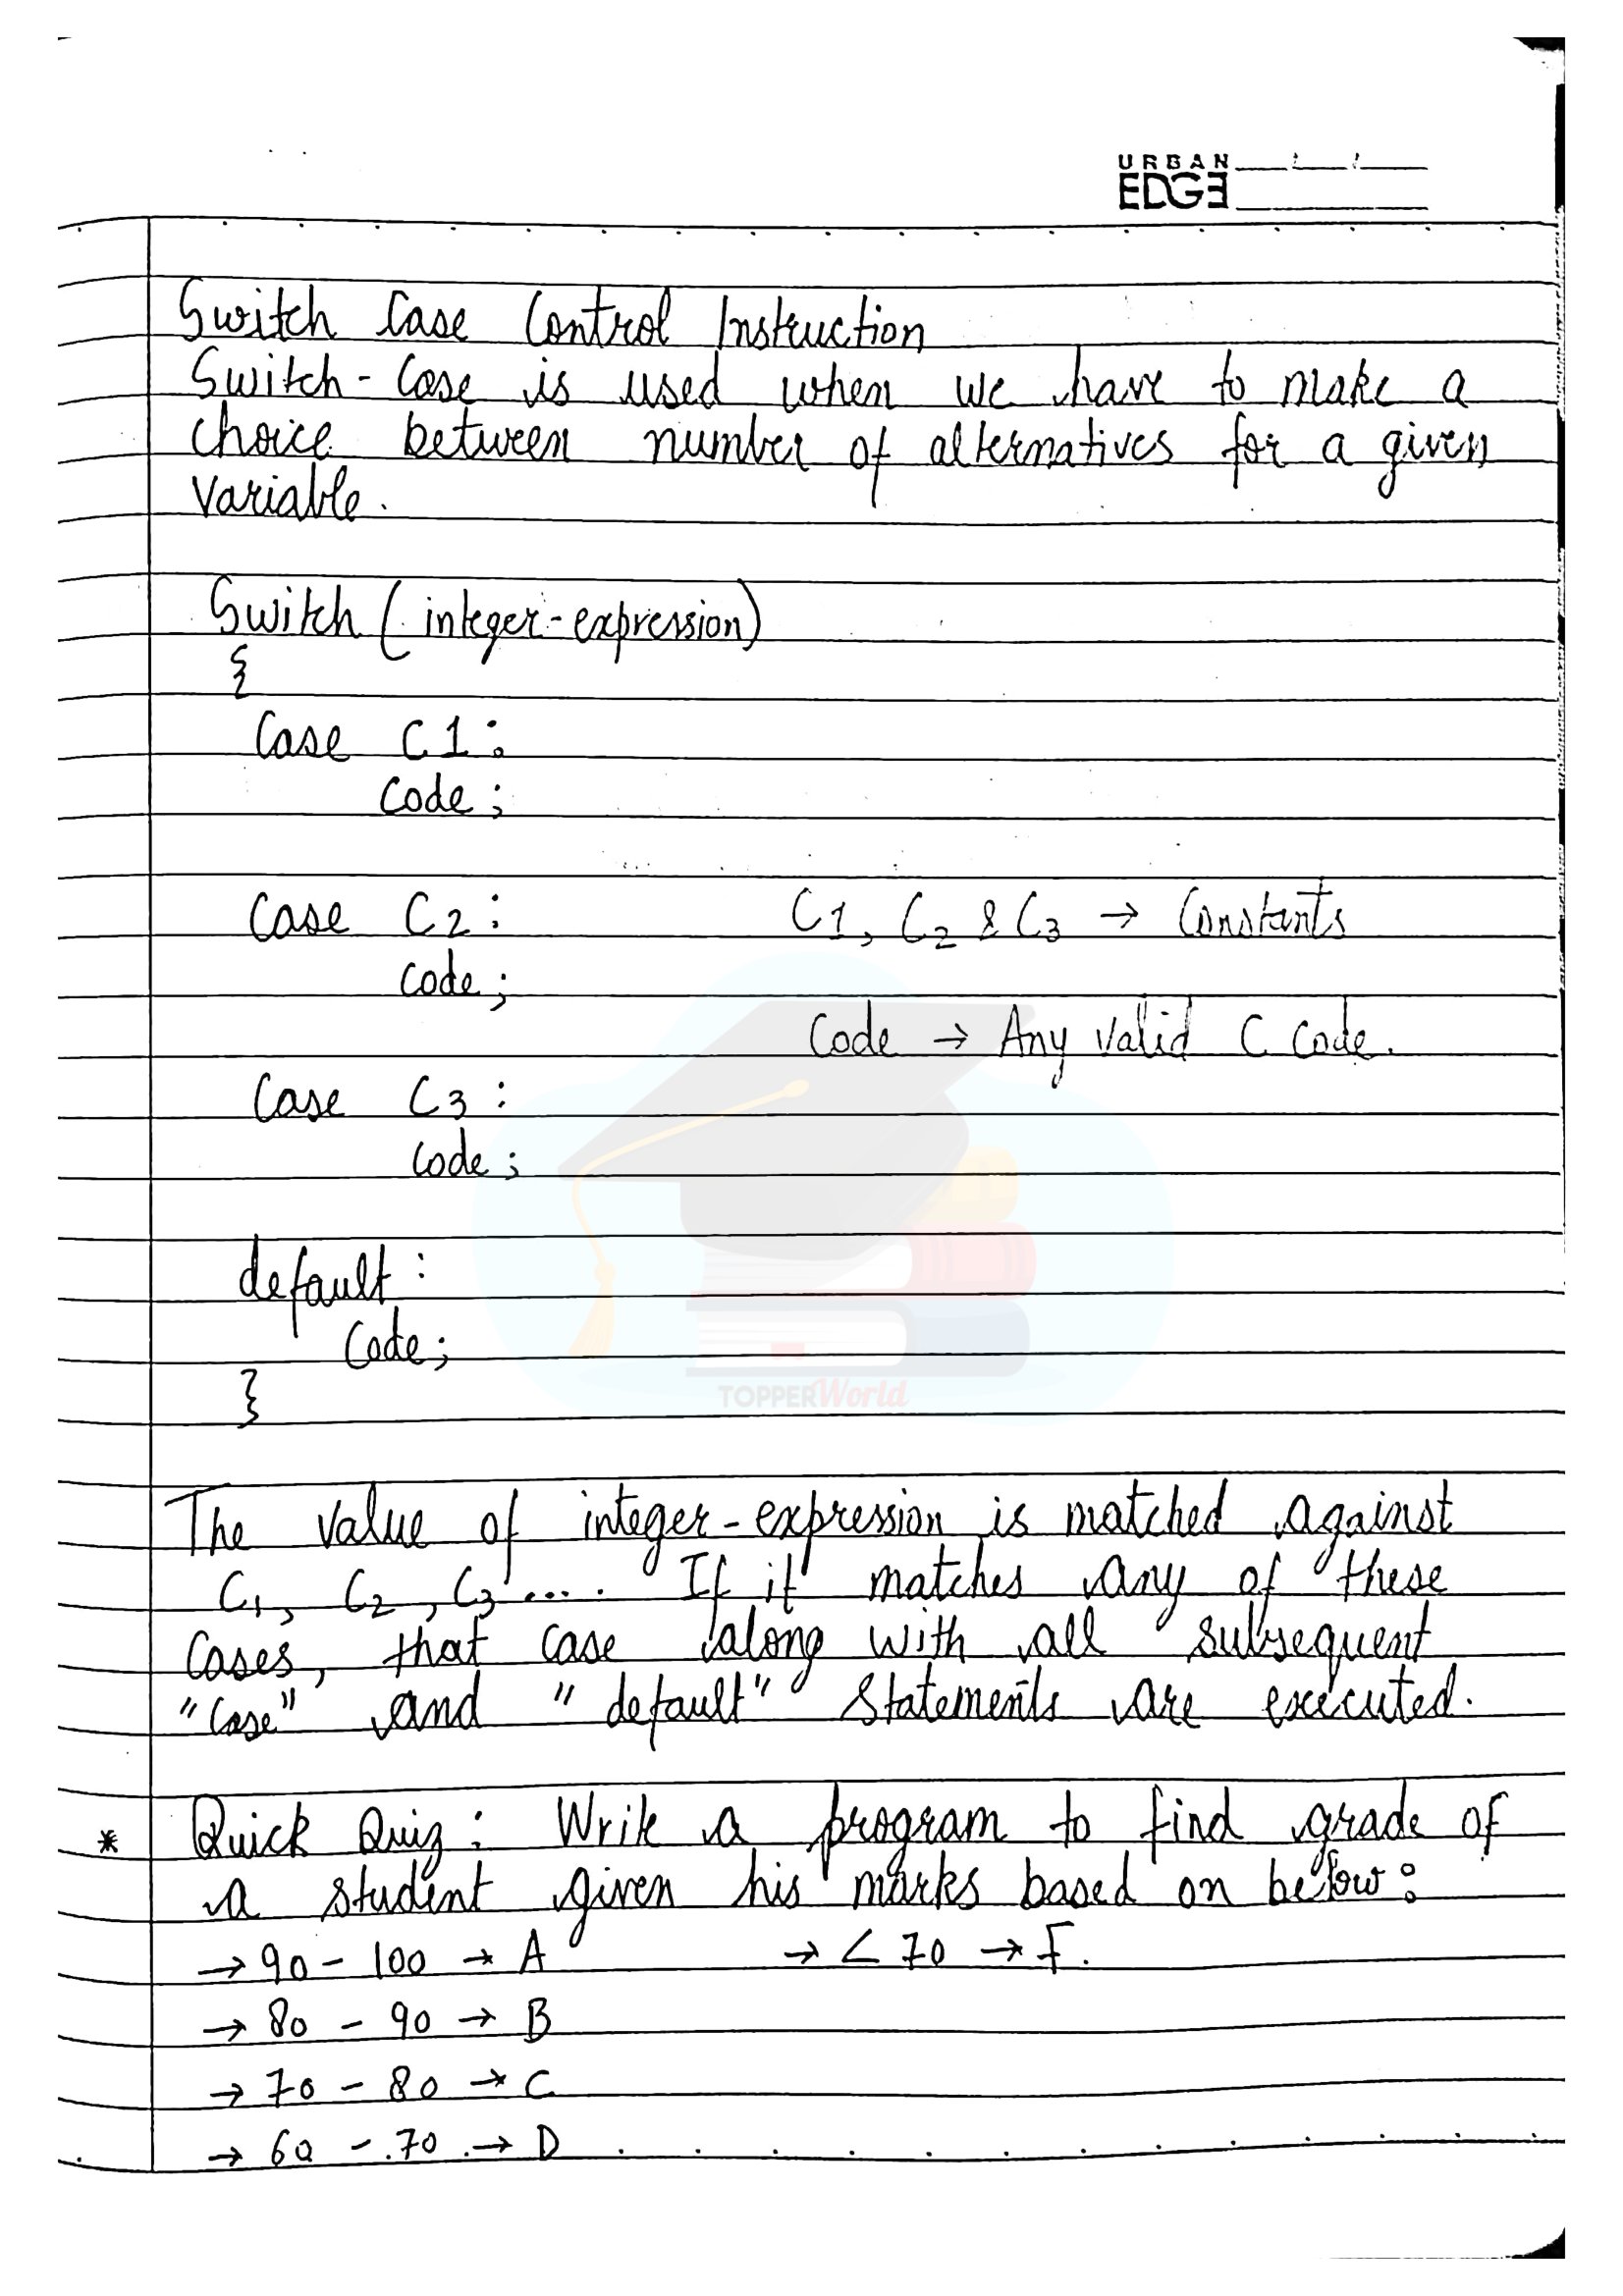 URBAN
EDGE
Switch Case Control Instruction
Switch-Case is used when we have to make a
choice between number of alternatives for a given
variable.
Switch (integer-expression)
{
Case C1:
Code;
Case C2:
C1, C2 & C3 → Constants
Code;
Code → Any valid C Code.
Case C3:
Code;
default:
Code;
}
TOPPERWorld
The value of integer-expression is matched against
C1, C2, C3.... If it matches any of these
Cases, that case along with all subsequent
"Case" and "default" statements are executed.
* Quick Quiz: Write a program to find grade of
a student given his marks based on below:
→ 90 - 100 → A → < 70 → F.
→ 80 - 90 → B
→ 70 - 80 → C
→ 60 - 70 → D